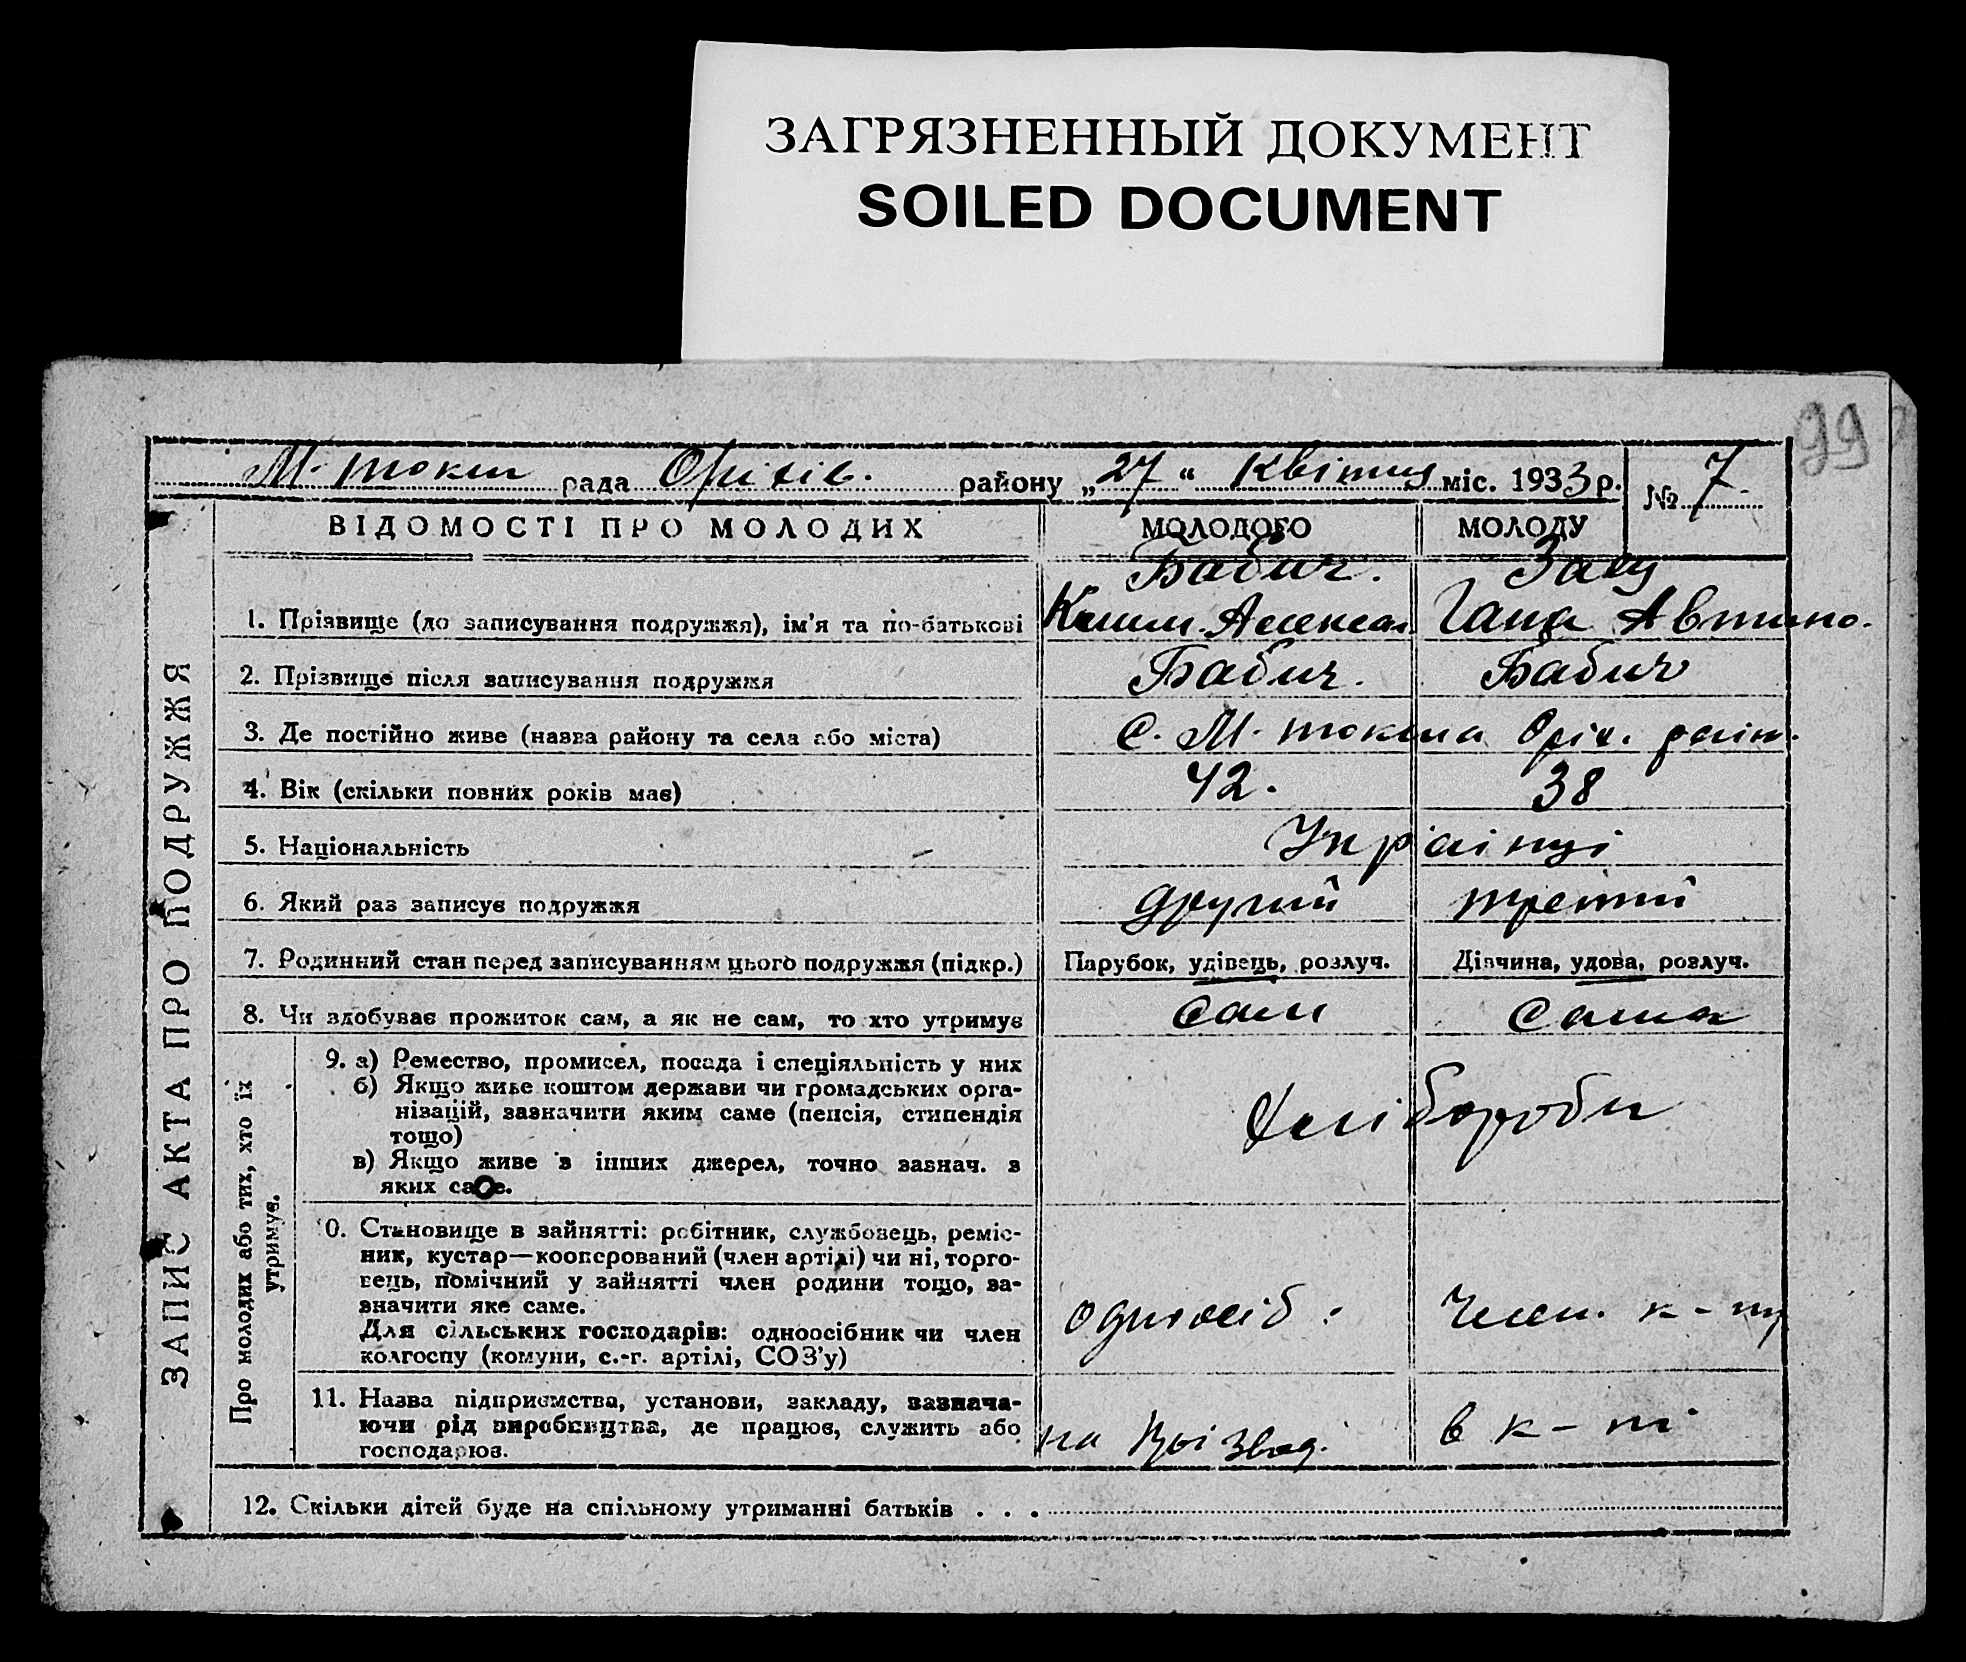 ЗАГРЯЗНЕННЫЙ ДОКУМЕНТ
SOILED DOCUMENT
99
М. токм рада Оріхів. району „27“ Квітня міс. 1933 р. № 7
ЗАПИС АКТА ПРО ПОДРУЖЖЯ
ВІДОМОСТІ ПРО МОЛОДИХ МОЛОДОГО МОЛОДУ
Бабич.
1. Прізвище (до записування подружжя), ім’я та по-батькові Гана Автоно.
2. Прізвище після записування подружжя Бабич. Бабич
3. Де постійно живе (назва району та села або міста) С. М. токма Оріх. район.
4. Вік (скільки повних років має) 42. 38
5. Національність Українці
6. Який раз записує подружжя другий третий
7. Родинний стан перед записуванням цього подружжя (підкр.) Парубок, удівець, розлуч. Дівчина, удова, розлуч.
8. Чи здобуває прожиток сам, а як не сам, то хто утримує сам сама
Про молодих або тих, хто їх утримує.
9. а) Ремество, промисел, посада і спеціяльність у них
б) Якщо живе коштом держави чи громадських орга-
нізацій, зазначити яким саме (пенсія, стипендія
тощо)
в) Якщо живе з інших джерел, точно зазнач. з
яких саме.
Хлібороби
10. Становище в зайнятті: робітник, службовець, реміс-
ник, кустар—кооперований (член артілі) чи ні, торго-
вець, помічний у зайнятті член родини тощо, за-
значити яке саме.
Для сільських господарів: одноосібник чи член
колгоспу (комуни, с.-г. артілі, СОЗ’у)
одноосіб. член. к-пу
11. Назва підприємства, установи, закладу, зазнача-
ючи рід виробництва, де працює, служить або
господарює.
на в к-пі
12. Скільки дітей буде на спільному утриманні батьків . . .